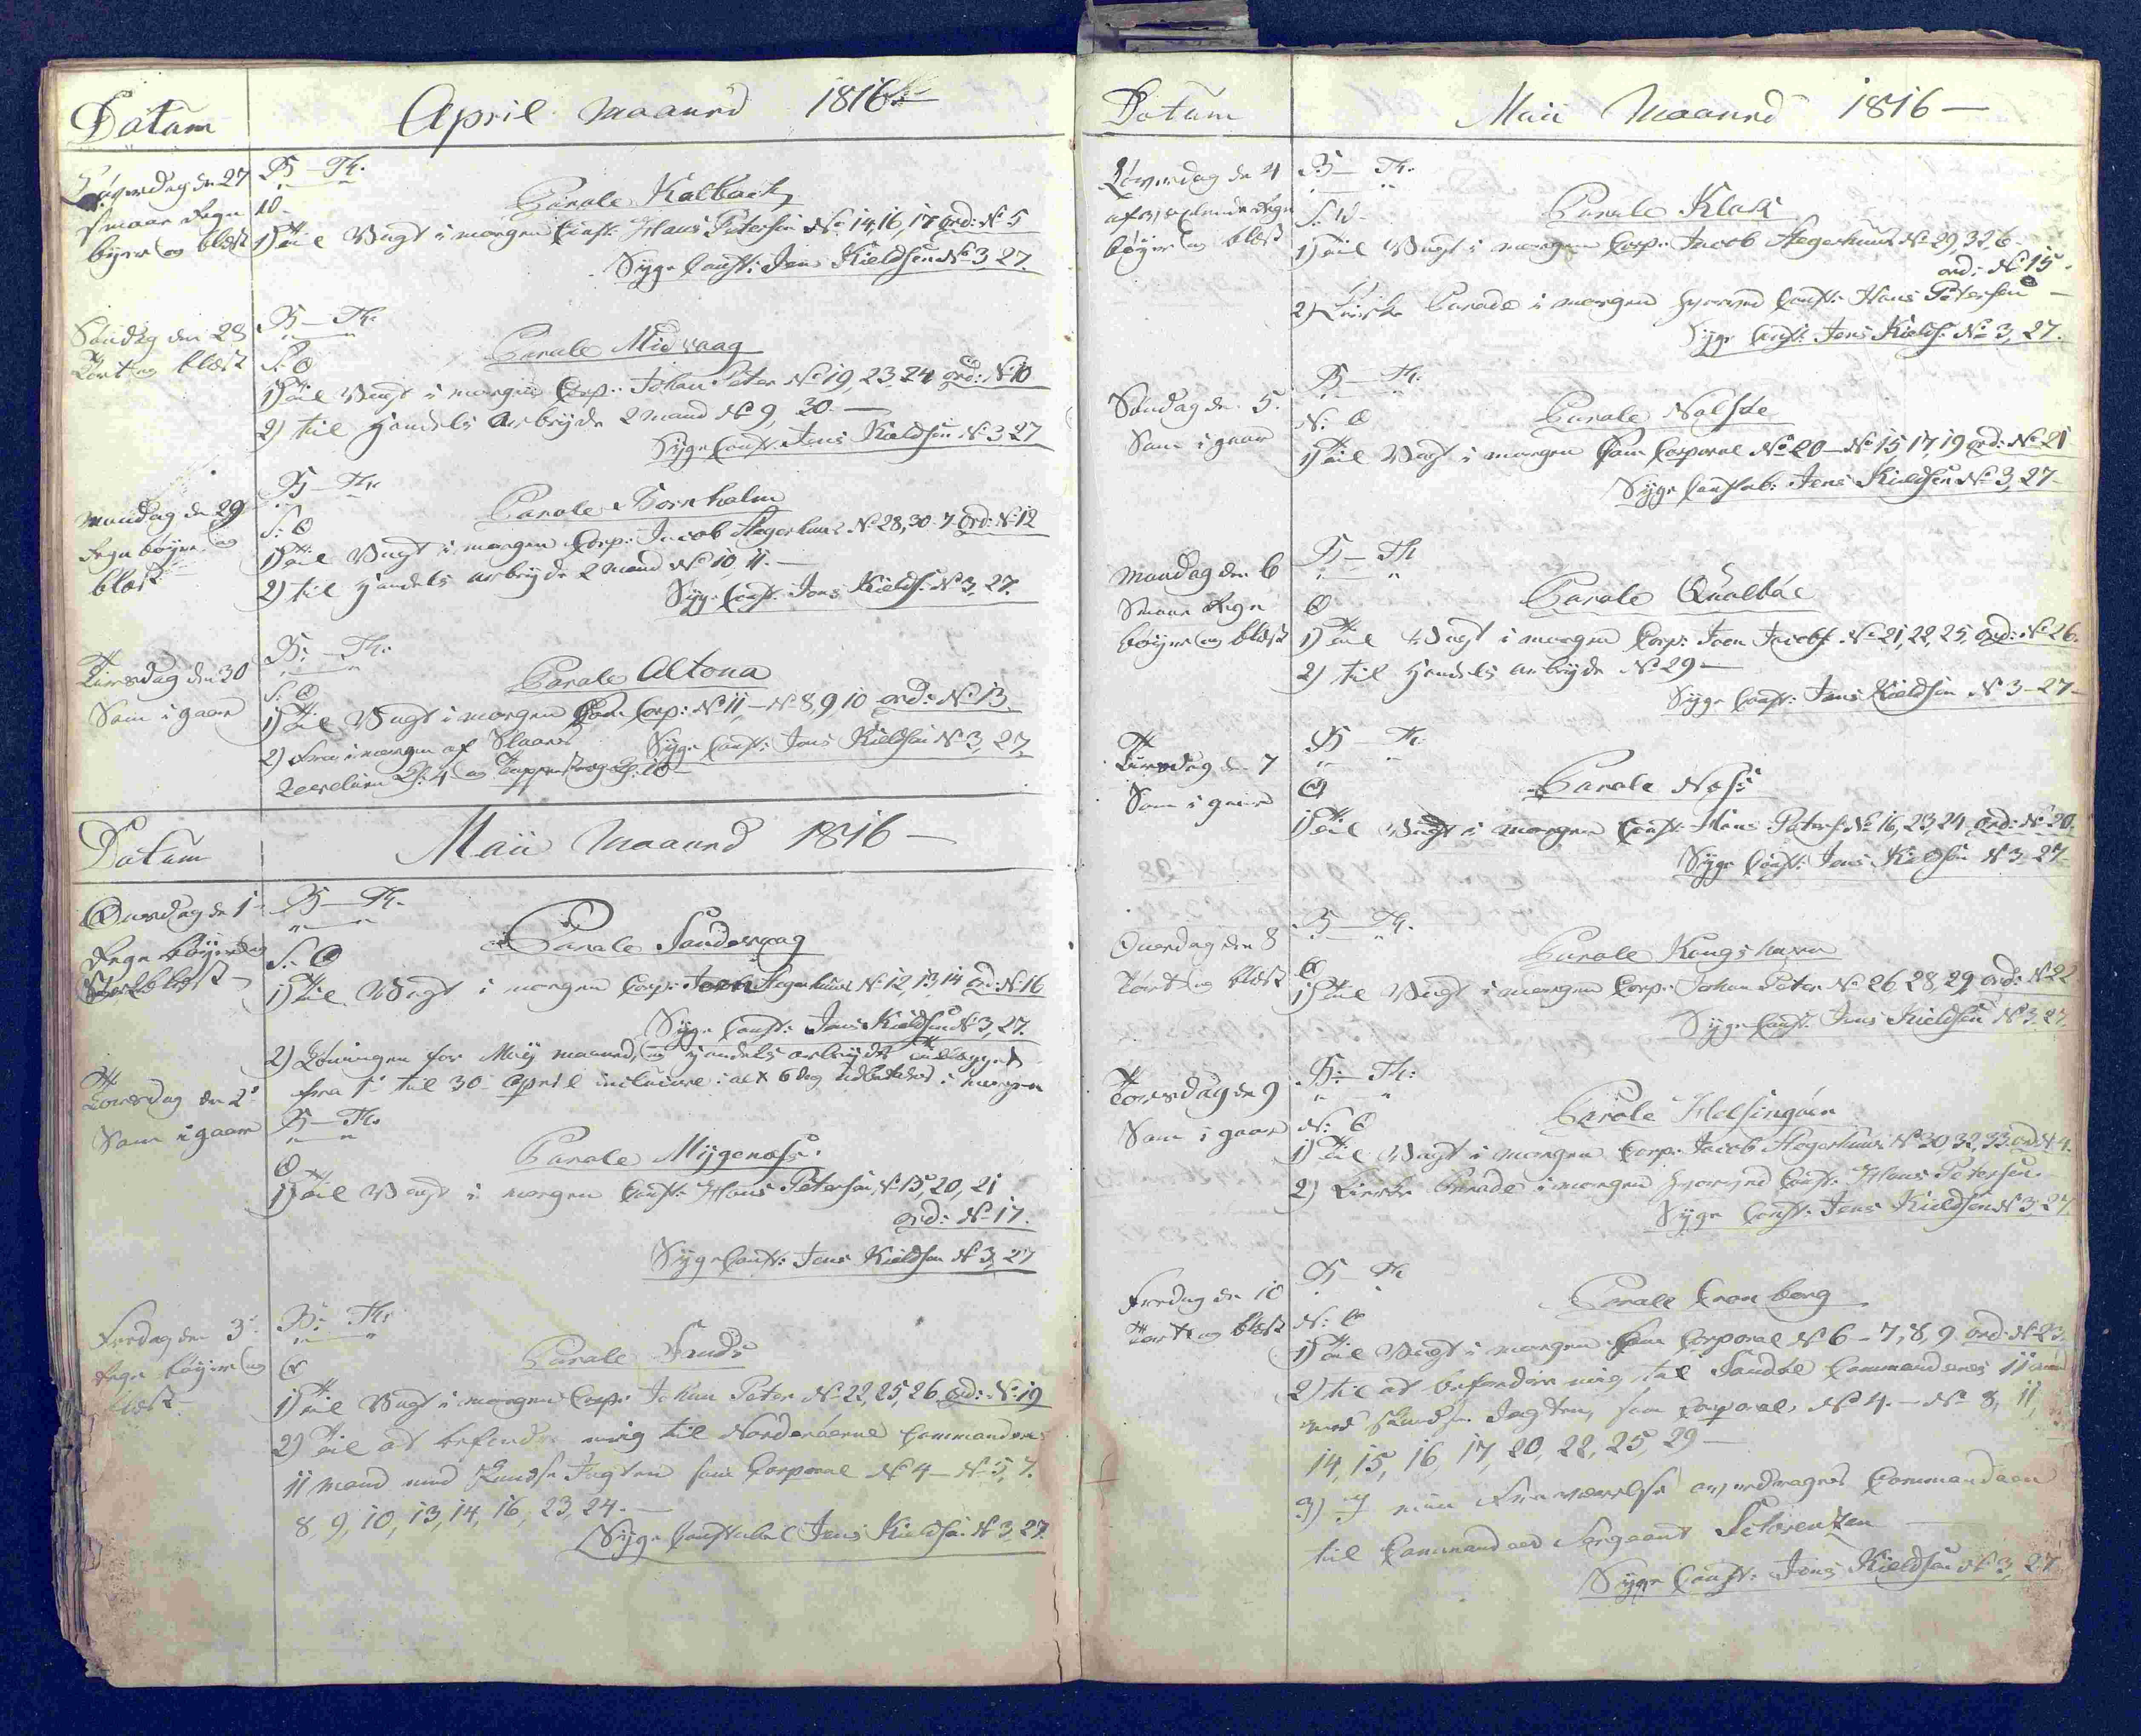 Datum
April Maaned 1816
Løverdag de 27
smaae Regn
byger og blæst
B — Th.
Parole Kalback
1) Til Vagt i morgen Const: Hans Petersen No 14, 16, 17 ord: No 5
Syge Const: Jens Kieldsen No 3 27.
Søndag den 28
Tørt og blæst
B — Th.
S: O
Parole Midvaag
1) Til Vagt i morgen Corp: Johan Peter No 19, 23, 24 ord: No 10
2) til Handels Arbeyde 2 mand No 9, 30. —
Syge Const: Jens Kieldsen No 3 27
Mandag de 29
Regn bøyer og
blæst
B — Th.
S: O
Parole Bornholm
1) Til Vagt i morgen Corp: Jacob Hegerhuus No 28, 30. 7 ord: No 12
2) til Handels arbeyde 2 mand No 10, 11. —
Syge Const: Jens Kields: No 3, 27.
Tiirsdag den 30
Som i gaar
B: — Th.
S: O
Parole Altona
1) Til Vagt i morgen som Corp: No 11, — No 8, 9, 10 ord: No 13.
2) Fra i morgen af Slaaes
Syge Const: Jens Kieldsen No 3, 27,
Revelien Kl: 4 og Tappenstreg Kl: 10 —
Datum
Maii Maaned 1816 —
Onsdag de 1
Regn bøyer og
Stærk blæst
B — Th.
S: O
Parole Sandevaag
1) Til Vagt i morgen Corp: Joen Hegerhuus No 12, 13, 14 ord: No 16
Syge Const: Jens Kieldsen No 3, 27.
2) Lønningen for Maÿ maaned, og Handels arbeydet
fra 1 til 30 April inclusive: alt 6 dag udbetales i morgen
Torsdag den 2
Som i gaar
B — Th.
O
Parole Mÿgenæss.
1) Til Vagt i morgen Const: Hans Petersen, No 15, 20, 21
ord: No 17.
Syge Const: Jens Kieldsen No 3, 27
Fredag den 3
Regn bøyer og
blæst
B: Th:
O
Parole Sands
1) Til Vagt i morgen Corp: Johan Peter No 22, 25, 26 ord: No 19
2) Til at befordre mig til Norderøerne Commanderes
11 mand med Skandse Jagten som Corporal No 4 — No 5, 7.
8, 9, 10, 13, 14, 16, 23, 24. —
Syge Constabel Jens Kieldsen No 3, 27.
Datum
Maii Maaned 1816 —
Løverdag de 4
Regn
bøyer og blæst
B — Th.
S: W.
Parole Klak
1) Til Vagt i morgen Corp: Jacob Hegerhuus No 29, 32, 6
ord: No 15.
2) Kirke Parade i morgen Const: Hans Petersen —
Syge Const: Jens Kields: No 3, 27.
Søndag de 5.
Som i gaar
B — Th:
N: O
Parole Nolsøe
1) Til Vagt i morgen som Corporal No 20 — No 15, 17, 19 ord: No 21
Syge Constab: Jens Kieldsen No 3, 27 —
Mandag den 6
Smaae Regn
bøyer og blæst
B — Th
O
Parole Qualbøe
1) Til Vagt i morgen Corp: Joen Jacobs: No 21, 22, 25, ord: No 26.
2) til Handels arbeyde No 29 —
Syge Const: Jens Kieldsen No 3 — 27 —
Tiirsdag de 7
Som i gaar
B — Th:
O
Parole Næs:
1) Til Vagt i morgen Const: Hans Peters: No 16, 23, 24 ord: No 20.
Syge Const: Jens Kieldsen No 3 27 —
Onsdag den 8
Tørt og blæst
B — Th.
O
Parole Kongshavn
1) Til Vagt i morgen Corp: Johan Peter No 26, 28, 29 ord: No 22
Syge Const: Jens Kieldsen No 3, 27.
Torsdag de 9
Som i gaar
B: — Th:
N: O
Parole Helsingøer
1) Til Vagt i morgen Corp: Jacob Hegerhuus No 30, 32, 33 ord No 4.
2) Kirke Parade i morgen Const: Hans Petersen.
Syge Const: Jens Kieldsen No 3, 27.
Fredag de 10
Tørt og blæst
B — Th
N: O
Parole Cronborg
1) Til Vagt i morgen som Corporal No 6 — 7, 8, 9. ord: No 23.
2) til at befordre mig til Sandøe Commanderes 11 mand
med Skandse Jagten, som Corporal, No 4. — No 8, 11,
14, 15, 16, 17, 20, 22, 25, 29 —
3) I min Fraværelse overdrages Commandoen
til Commandeer Sergeant
Syge Const: Jens Kieldsen No 3, 27